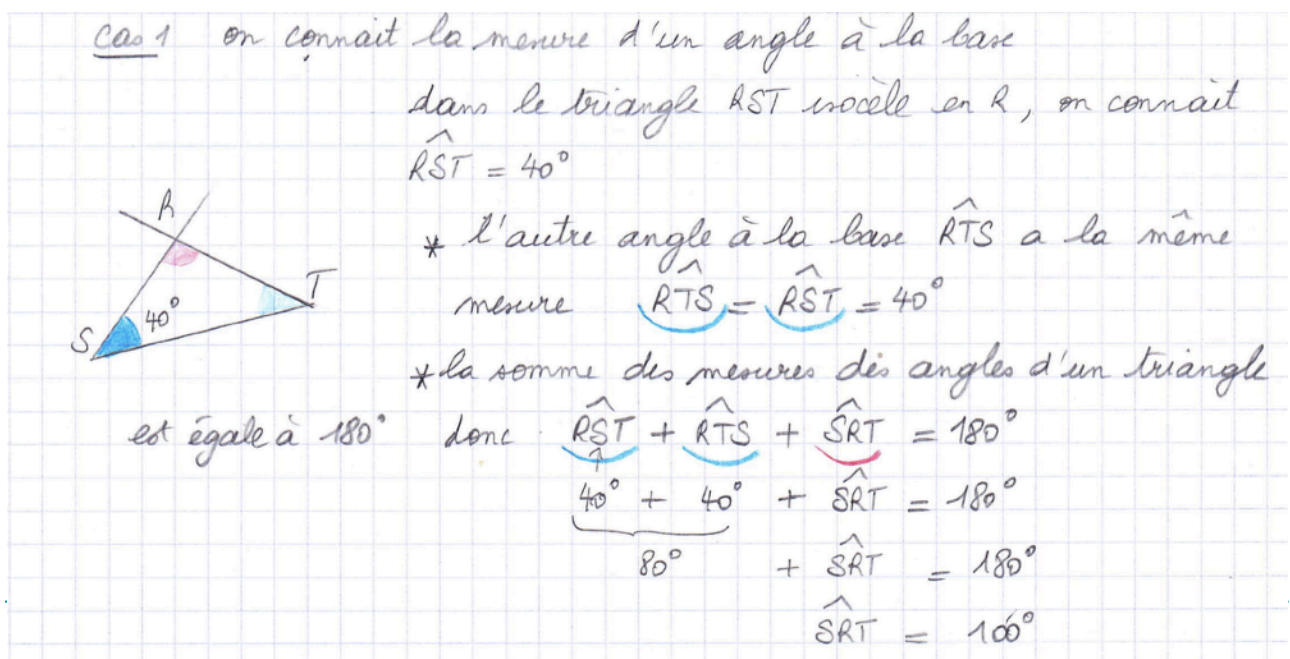 cas 1 on connait la mesure d'un angle à la base
dans le triangle RST isocèle en R, on connait
R̂ST = 40°
R
* l'autre angle à la base R̂TS a la même
T
mesure R̂TS = R̂ST = 40°
40°
S
* la somme des mesures des angles d'un triangle
est égale à 180° donc R̂ST + R̂TS + ŜRT = 180°
40° + 40° + ŜRT = 180°
80° + ŜRT = 180°
ŜRT = 100°